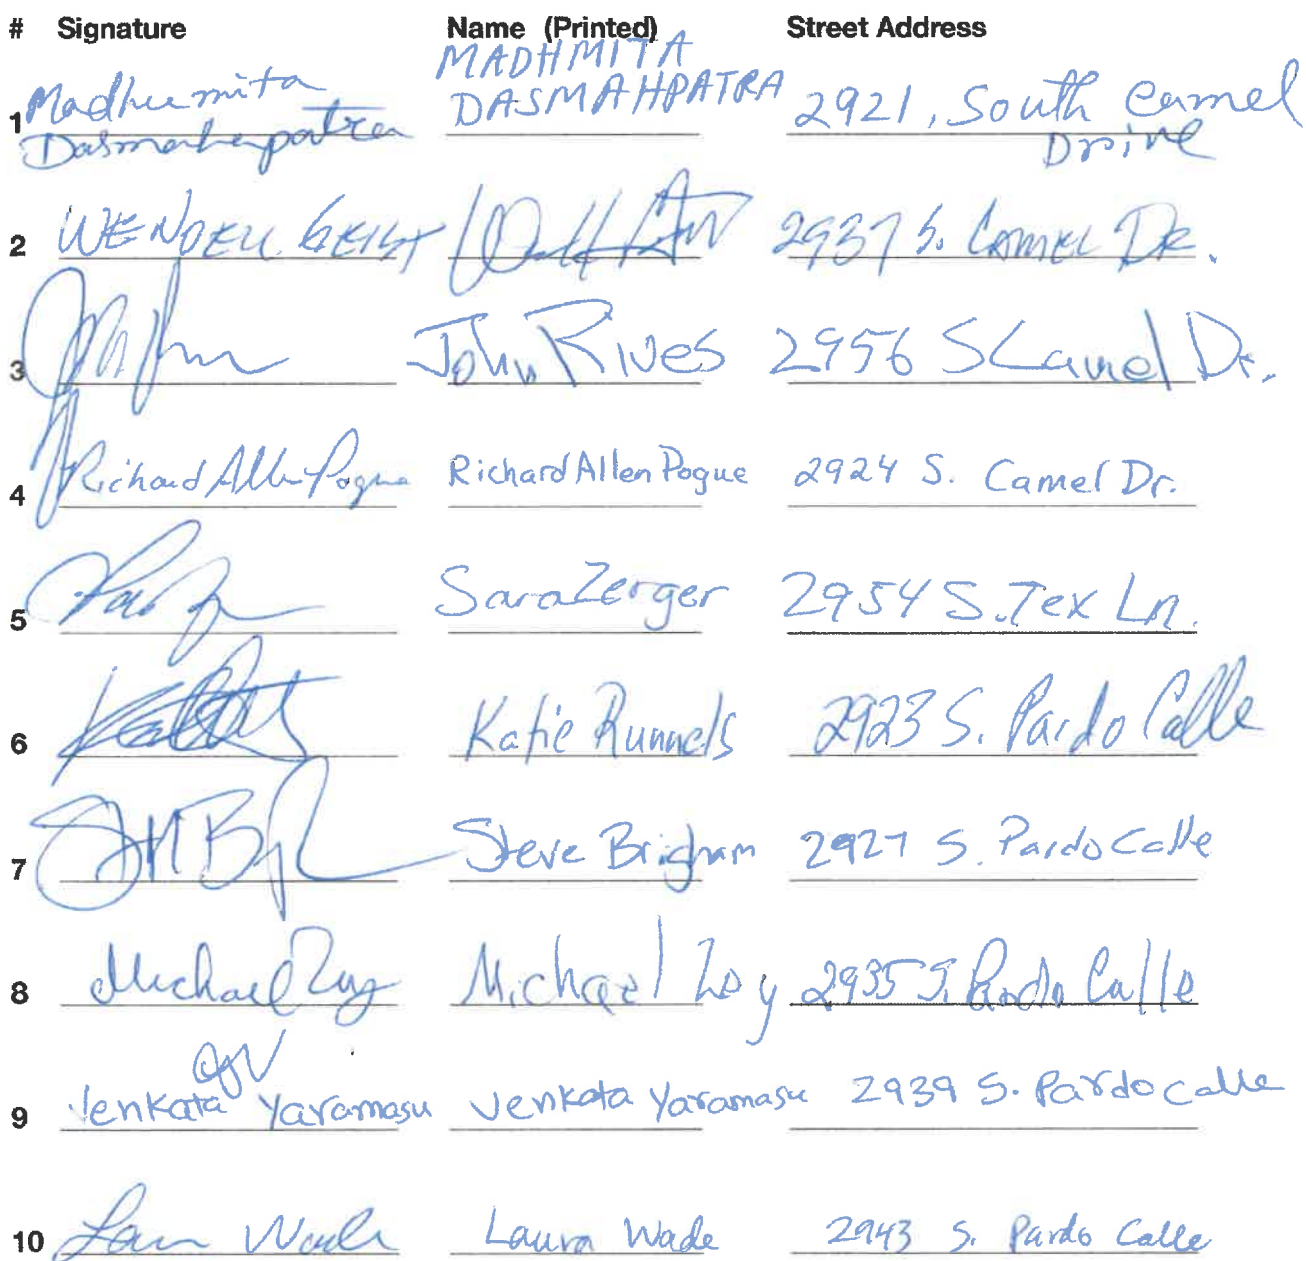 # Signature Name (Printed) Street Address
1 Madhumita Dasmahapatra MADHMITA DASMAHPATRA 2921, South Camel Drive
2 WENDELL GEIST 2937 S. CAMEL DR.
3 John Rives 2956 S Camel Dr.
4 Richard Allen Pogue Richard Allen Pogue 2924 S. Camel Dr.
5 Sara Zerger 2954 S. Tex Ln.
6 Katie Runnels 2923 S. Pardo Calle
7 Steve Brigham 2927 S. Pardo Calle
8 Michael Michael 2935 S. Pardo Calle
9 Venkata Yaramasu Venkata Yaramasu 2939 S. Pardo calle
10 Laura Wade Laura Wade 2943 S. Pardo Calle